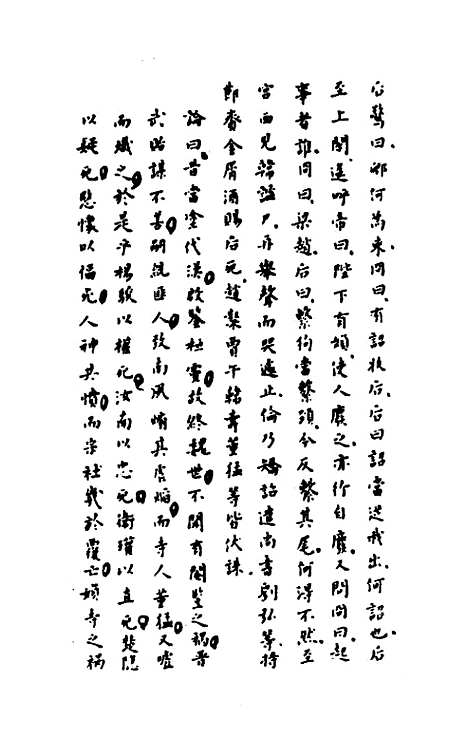 后驚曰卿何為來冏曰有詔收后后曰詔當從我出何詔也后
至上閤遙呼帝曰陛下有婦使人廢之亦行自廢又問冏曰起
事者誰冏曰梁趙后曰繫狗當繫頸今反繫其尾何得不然至
宮西見謐尸再舉聲而哭遽止倫乃矯詔遣尚書劉弘等持
節齎金屑酒賜后死趙粲賈午韓壽董猛等皆伏誅
論曰昔當塗代漢改鑒社實故終魏世不聞有閹豎之禍晉
武貽謀不善嗣統匪人致南風煽其虐焰而寺人董猛又嘘
而熾之於是乎楊駿以權死汝南以忠死衛瓘以直死楚隱
以疑死愍懷以偪死人神共憤而宗社幾於覆亡婦寺之禍